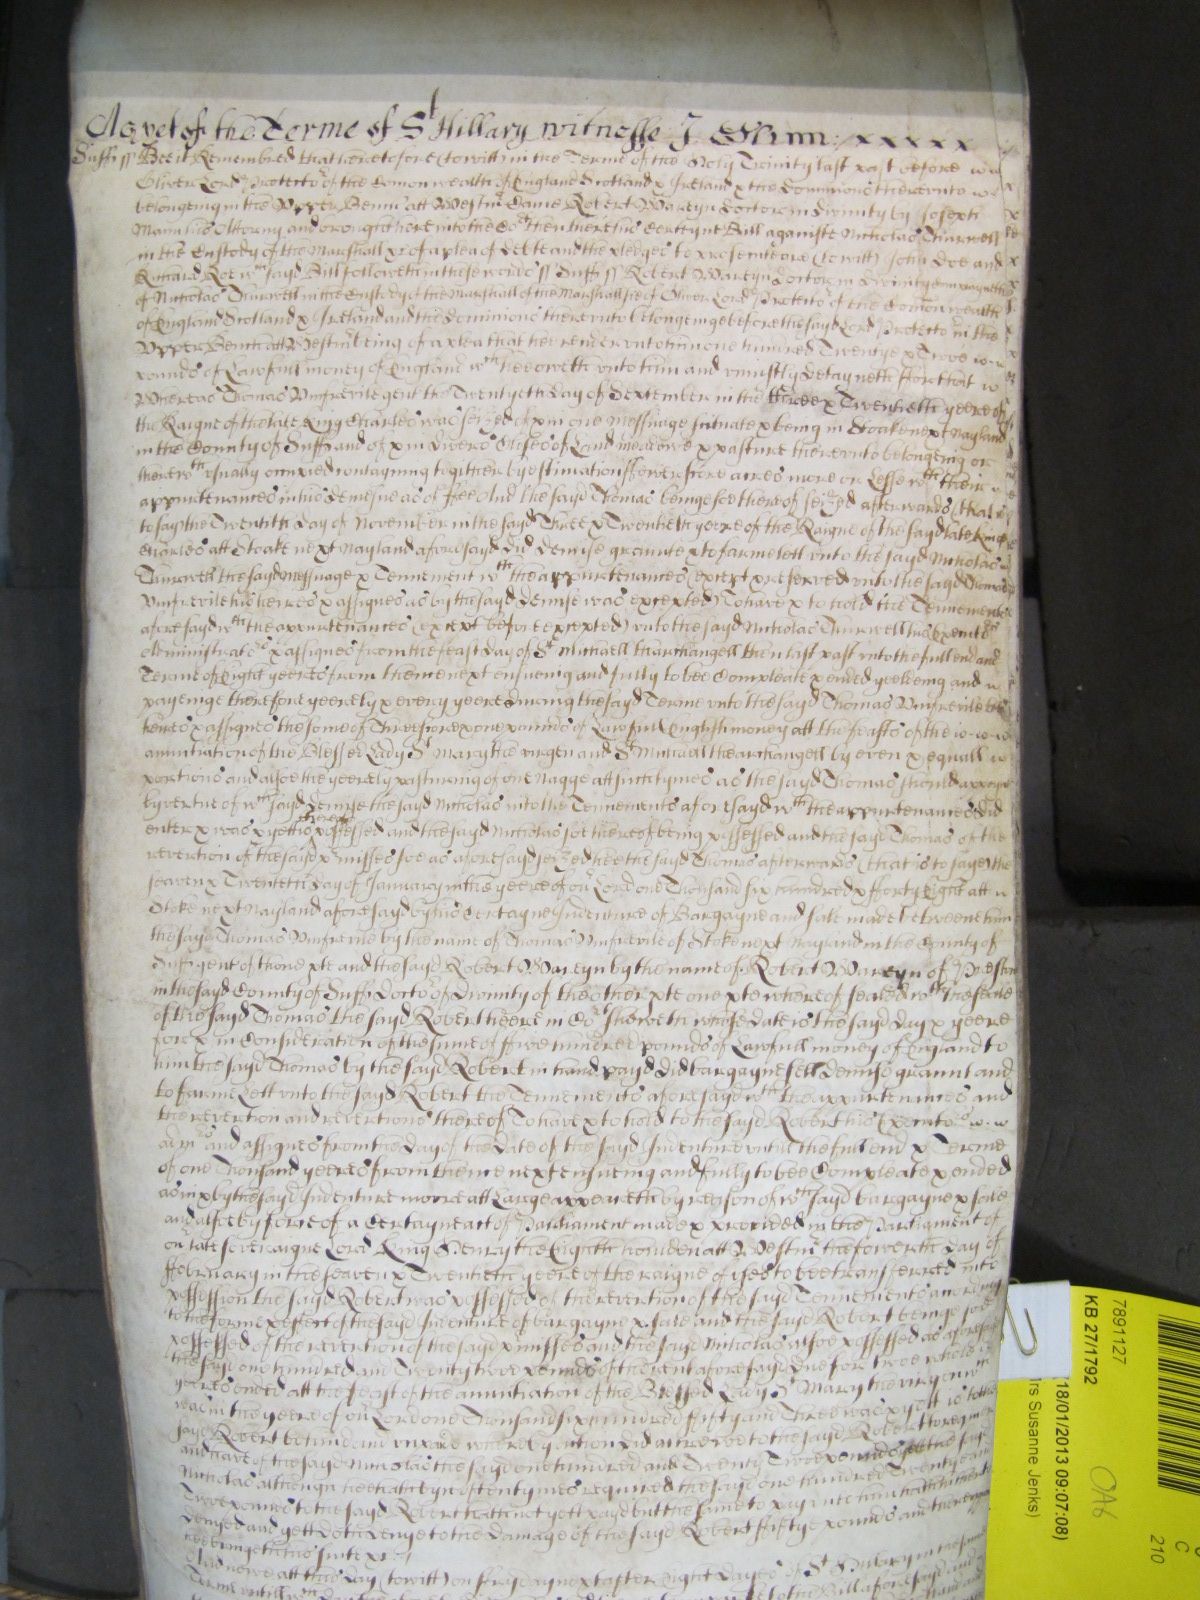 As yet of the Terme of St Hillary witnesse J. Glynn: x x x x x
Suff ss Bee it Remembred that heretofore (to witt) in the Terme of the Holy Trinity last past before
Oliver Lord Protector of the Comonwealth of England Scotland & Ireland & the dominions thereunto
belongeing in the Upper Bench att Westm Came Robert Wareyn doctor in divinity by Joseph
his Attorny and brought here into the Cort then there his Certeyne Bill against Nicholas Thurwell
in the Custody of the Marshall &c of a plea of debte and the pledges to prosecute are (to witt) John Doe and
Richard Roe wch sayd Bill followeth in these words ss Suff ss Robert Wareyn doctor in divinity
of Nicholas Thurwell in the Custody of the Marshall of the Marshallsie of Oliver Lord Protector of the Comonwealth
of England Scotland & Ireland and the dominions thereunto belongeinge before the sayd Lord Protector in the
Upper Bench att Westm being of a plea that hee render unto him one hundred Twentye & Twoe
pounds of Lawfull money of England wch hee oweth unto him and uniustly detayneth ffor that
Whereas Thomas Umfrevile gent the Twentyeth day of September in the three & Twentieth yeere of
the Raigne of the late King Charles was seized of & in one Messuage situate & being in Stoake next Nayland
in the County of Suff and of & in divers Closes of Land meadowe & pasture thereunto belongeing or
therewth usually occupied contayning togither by estimation ffowerscore acres more or Lesse wth their
appurtenances in his demesne as of ffee And the sayd Thomas beinge soe thereof seized afterwards (that is
to say) the Twentith day of November in the sayd Three & Twentieth yeere of the Raigne of the sayd late Kinge
Charles att Stoake next Nayland aforesayd did demise graunte & to farme lett unto the sayd Nicholas
Thurwell the sayd Messuage & Tennement wth the appurtenances (except & reserved unto the sayd Thomas
Umfrevile his heires & assignes as by the sayd demise was excepted) To have & to hold the Tennements
aforesayd wth the appurtenances (except before excepted) unto the sayd Nicholas Thurwell his Executors
Administrators & assignes from the feast day of St Michaell tharchangell then last past unto the full end and
Terme of Eight yeeres from thence next ensueing and fully to bee Compleate & ended yeelding and
payeinge therefore yeerely & every yeere during the sayd Terme unto the sayd Thomas Umfrevile his
heires & assignes the some of Threescore & one pounds of Lawfull English money att the feasts of the
annuntiation of the Blessed Lady St Mary the virgen and St Michaell the archangell by even & equall
portions and alsoe the yeerely pasturing of one Nagge att such tymes as the sayd Thomas should
by vertue of wch sayd demise the sayd Nicholas into the Tennements aforesayd wth the appurtenances did
enter & was & yett is thereof possessed and the sayd Nicholas soe thereof being possessed and the sayd Thomas of the
revertion of the sayd premisses soe as aforesayd seized hee the sayd Thomas afterwards (that is to saye) the
seaven & Twentieth day of January in the yeere of our Lord one Thousand six hundred & fforty Eight att
Stoke next Nayland aforesayd by his Certayne Indenture of Bargayne and sale made betweene him
the sayd Thomas Umfrevile by the name of Thomas Umfrevile of Stoke next Nayland in the County of
Suff gent of thone pte and the sayd Robert Wareyn by the name of Robert Wareyn of
in the sayd County of Suff doctor of divinity of the other pte one pte whereof sealed wth the seale
of the sayd Thomas the sayd Robert heere in Cort sheweth whose date is the sayd day & yeere
for & in Consideration of the sume of ffive hundred pounds of Lawfull money of England to
him the sayd Thomas by the sayd Robert in hand payd did bargayne sell demise graunt and
to farme Lett unto the sayd Robert the Tennements aforesayd wth the appurtenances and
the revertion and revertions thereof To have & to hold to the sayd Robert his Executors
admrs and assignes from the day of the date of the sayd Indenture untill the full end & Terme
of one Thousand yeeres from thence next ensueing and fully to bee Compleate & ended
as in & by the sayd Indenture more att Large appeareth by reason of wch sayd bargayne & sale
and alsoe by force of a Certayne act of Parliament made & provided in the Parliament of
our late soveraigne Lord King Henry the Eighth houlden att Westm the fowerth day of
ffebruary in the seaven & Twentieth yeere of the raigne of uses to bee transferred into
possession the sayd Robert was possessed of the revertion of the sayd Tennements according
to the forme & effect of the sayd Indenture of bargayne & sale and the sayd Robert beinge soe
possessed of the revertion of the sayd premisses and the sayd Nicholas alsoe possessed as aforesayd
the sayd one hundred and Twenty twoe pounds of the rent aforesayd due for twoe whole
yeeres ended att the feast of the annuntiation of the Blessed Lady St Mary the virgen wch
was in the yeere of our Lord one Thousand six hundred ffifty and Three was & yett is to the
sayd Robert behind and unpayd whereby action did accrewe to the sayd Robert to require
and have of the sayd Nicholas the sayd one hundred and Twenty Twoe pounds yett the sayd
Nicholas although hee thereunto oftentymes required the sayd one hundred Twentye and
Twoe pounds to the sayd Robert hath not yett payd but the same to pay unto him hath hitherto
denyed and yett doth denye to the damage of the sayd Robert ffiftye pounds and thereupon
hee bringeth his suite &c
And nowe att this day (to witt) on next after Eight dayes of St Hillary in the same
Terme untill wch the Bill aforesayd
7891127
KB 27/1792
18/01/2013 09:07:08)
rs Susanne Jenks)
OA6
C
210